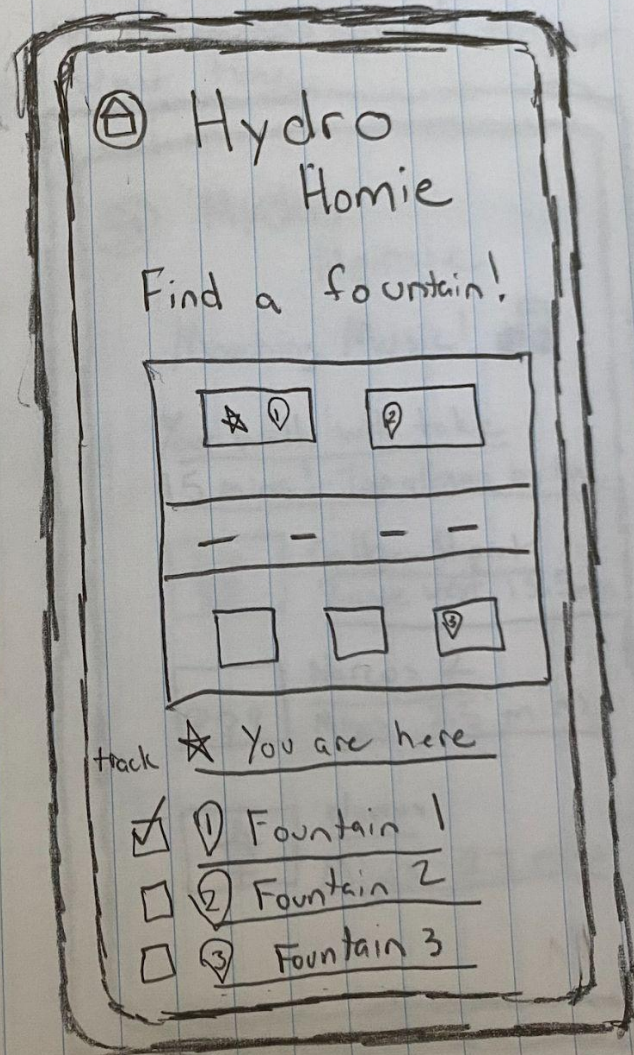 Hydro
Homie
Find a fountain!
1
2
3
track
You are here
1 Fountain 1
2 Fountain 2
3 Fountain 3